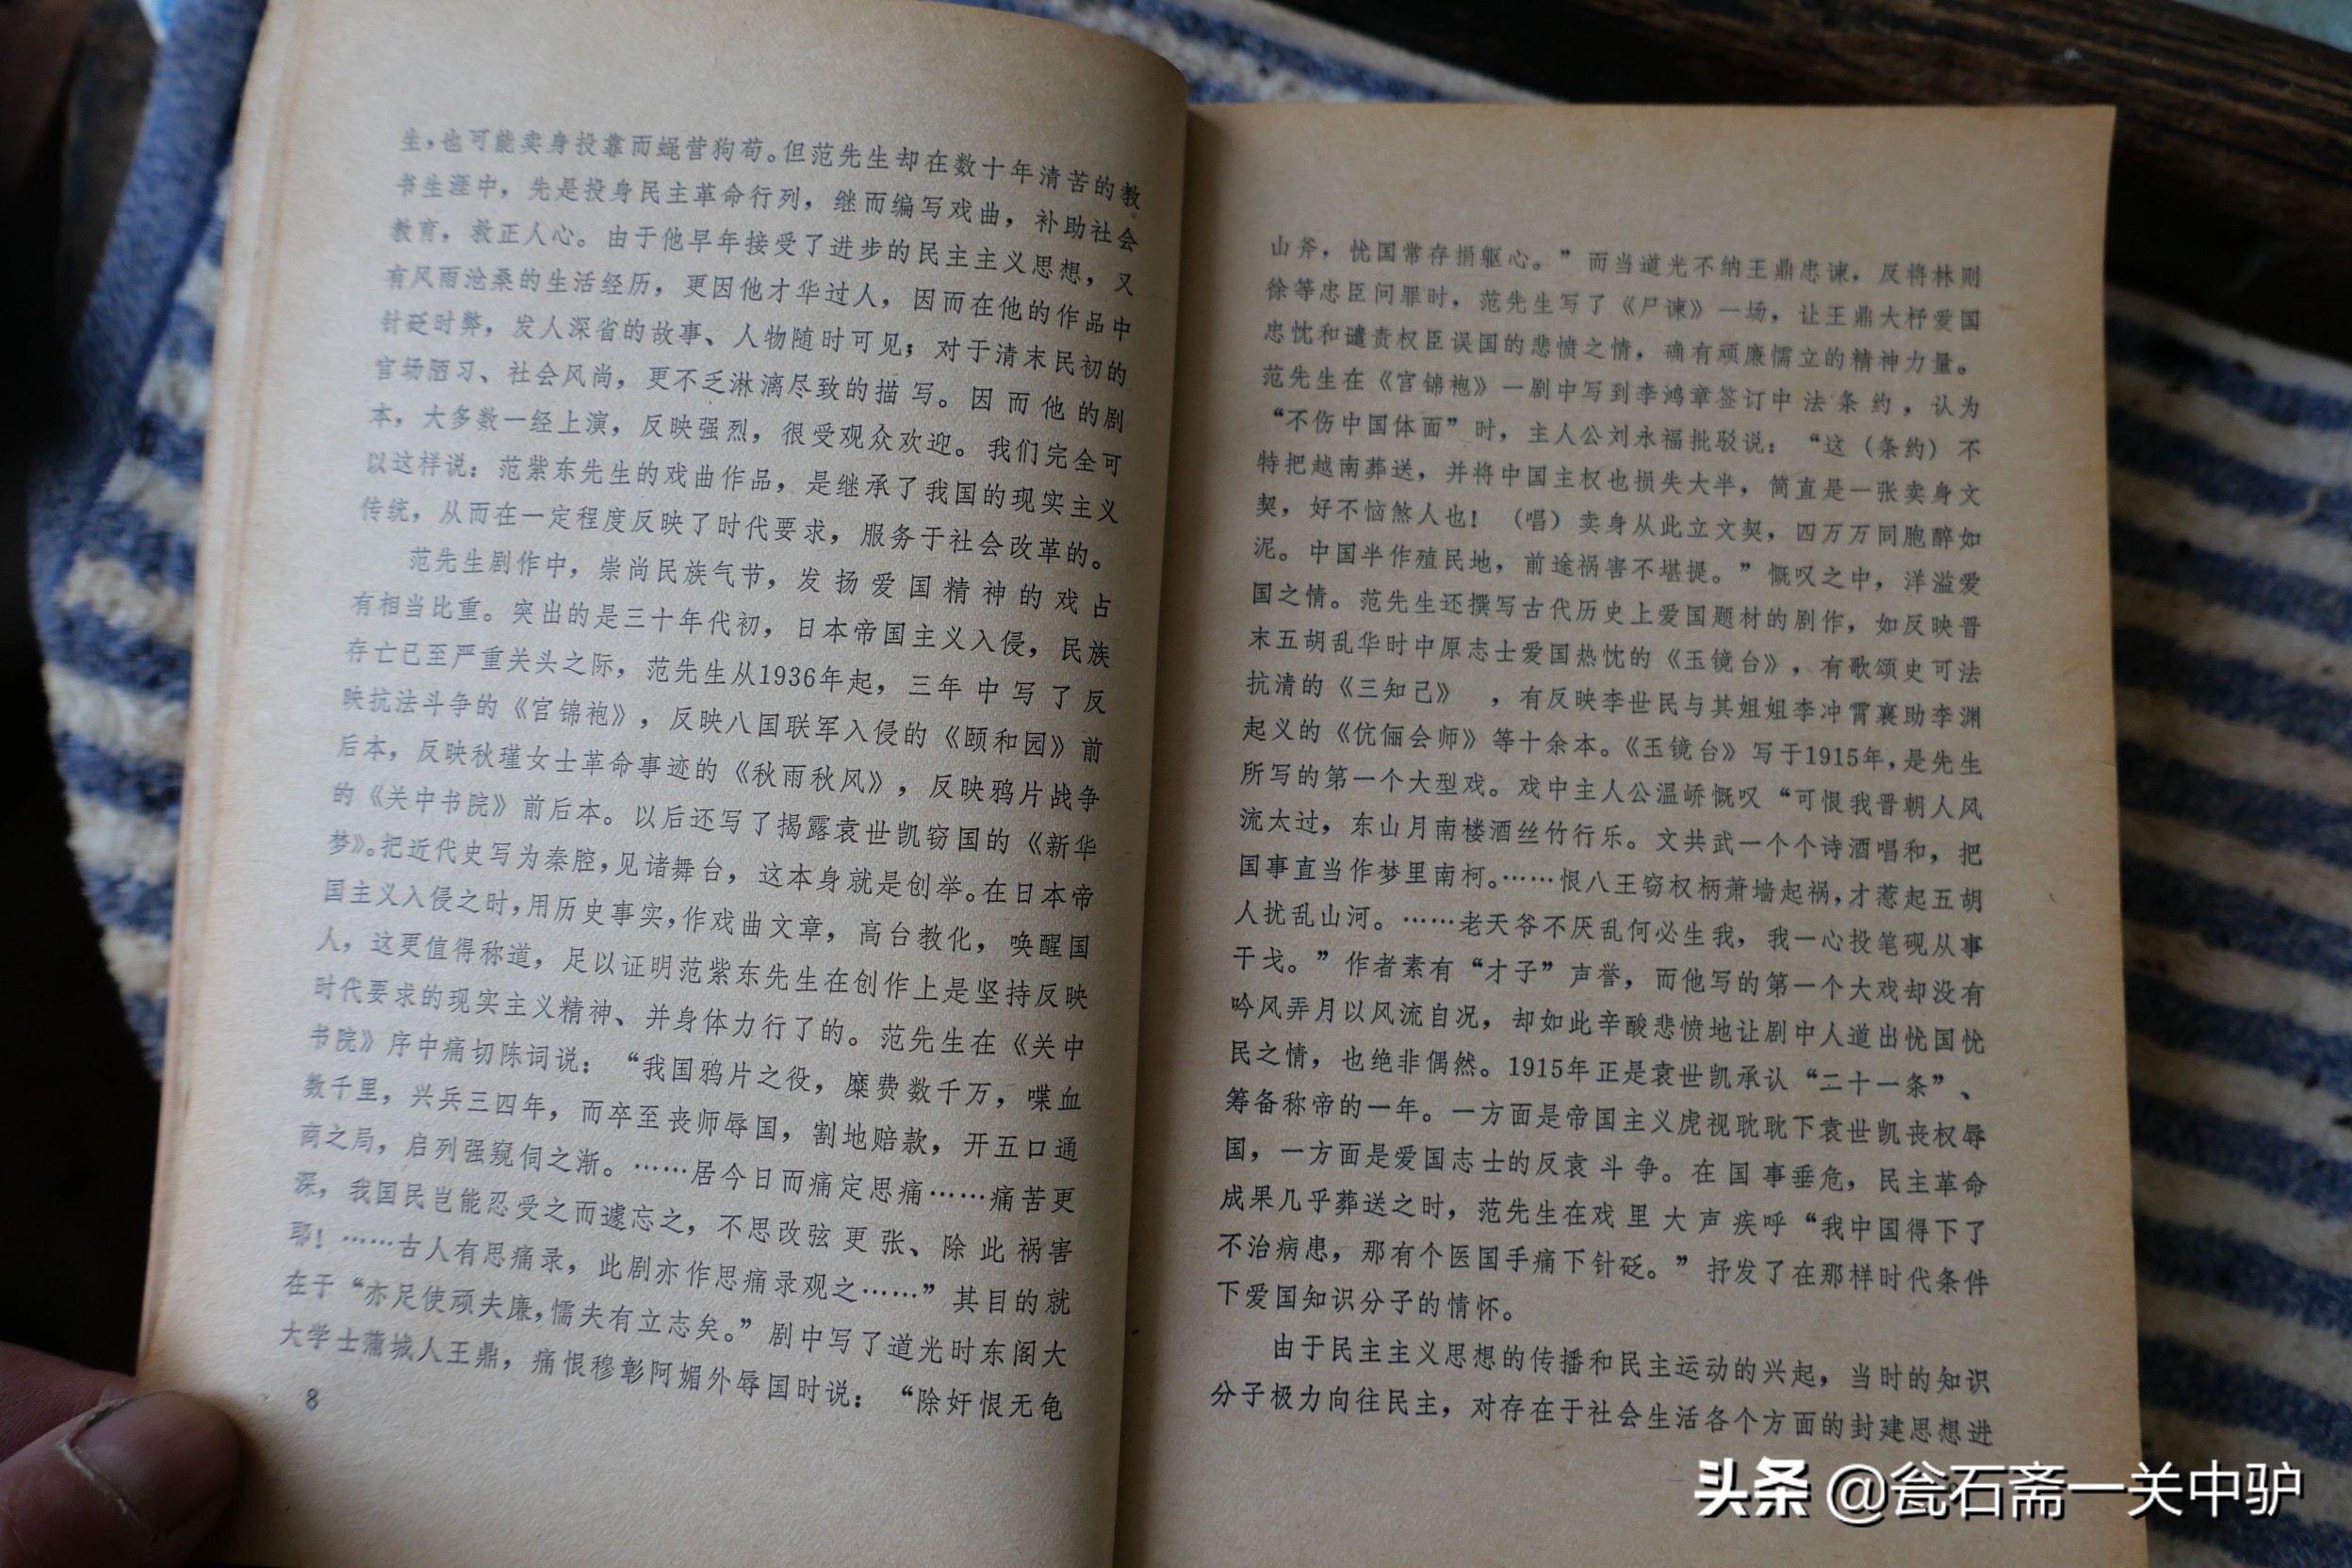 生，也可能卖身投靠而蝇营狗苟。但范先生却在数十年清苦的教
书生涯中，先是投身民主革命行列，继而编写戏曲，补助社会
教育，救正人心。由于他早年接受了进步的民主主义思想，又
有风雨沧桑的生活经历，更因他才华过人，因而在他的作品中
针砭时弊，发人深省的故事、人物随时可见；对于清末民初的
官场陋习、社会风尚，更不乏淋漓尽致的描写。因而他的剧
本，大多数一经上演，反映强烈，很受观众欢迎。我们完全可
以这样说：范紫东先生的戏曲作品，是继承了我国的现实主义
传统，从而在一定程度反映了时代要求，服务于社会改革的。
范先生剧作中，崇尚民族气节，发扬爱国精神的戏占
有相当比重。突出的是三十年代初，日本帝国主义入侵，民族
存亡已至严重关头之际，范先生从1936年起，三年中写了反
映抗法斗争的《宫锦袍》，反映八国联军入侵的《颐和园》前
后本，反映秋瑾女士革命事迹的《秋雨秋风》，反映鸦片战争
的《关中书院》前后本。以后还写了揭露袁世凯窃国的《新华
梦》。把近代史写为秦腔，见诸舞台，这本身就是创举。在日本帝
国主义入侵之时，用历史事实，作戏曲文章，高台教化，唤醒国
人，这更值得称道，足以证明范紫东先生在创作上是坚持反映
时代要求的现实主义精神、并身体力行了的。范先生在《关中
书院》序中痛切陈词说：“我国鸦片之役，糜费数千万，喋血
数千里，兴兵三四年，而卒至丧师辱国，割地赔款，开五口通
商之局，启列强窥伺之渐。……居今日而痛定思痛……痛苦更
深，我国民岂能忍受之而遽忘之，不思改弦更张、除此祸害
耶！……古人有思痛录，此剧亦作思痛录观之……”其目的就
在于“亦足使顽夫廉，懦夫有立志矣。”剧中写了道光时东阁大
大学士蒲城人王鼎，痛恨穆彰阿媚外辱国时说：“除奸恨无龟
8
山斧，忧国常存捐躯心。”而当道光不纳王鼎忠谏，反将林则
徐等忠臣问罪时，范先生写了《尸谏》一场，让王鼎大抒爱国
忠忱和谴责权臣误国的悲愤之情，确有顽廉懦立的精神力量。
范先生在《宫锦袍》一剧中写到李鸿章签订中法条约，认为
“不伤中国体面”时，主人公刘永福批驳说：“这（条约）不
特把越南葬送，并将中国主权也损失大半，简直是一张卖身文
契，好不恼煞人也！（唱）卖身从此立文契，四万万同胞醉如
泥。中国半作殖民地，前途祸害不堪提。”慨叹之中，洋溢爱
国之情。范先生还撰写古代历史上爱国题材的剧作，如反映晋
末五胡乱华时中原志士爱国热忱的《玉镜台》，有歌颂史可法
抗清的《三知己》，有反映李世民与其姐姐李冲霄襄助李渊
起义的《伉俪会师》等十余本。《玉镜台》写于1915年，是先生
所写的第一个大型戏。戏中主人公温峤慨叹“可恨我晋朝人风
流太过，东山月南楼酒丝竹行乐。文共武一个个诗酒唱和，把
国事直当作梦里南柯。……恨八王窃权柄萧墙起祸，才惹起五胡
人扰乱山河。……老天爷不厌乱何必生我，我一心投笔砚从事
干戈。”作者素有“才子”声誉，而他写的第一个大戏却没有
吟风弄月以风流自况，却如此辛酸悲愤地让剧中人道出忧国忧
民之情，也绝非偶然。1915年正是袁世凯承认“二十一条”、
筹备称帝的一年。一方面是帝国主义虎视耽耽下袁世凯丧权辱
国，一方面是爱国志士的反袁斗争。在国事垂危，民主革命
成果几乎葬送之时，范先生在戏里大声疾呼“我中国得下了
不治病患，那有个医国手痛下针砭。”抒发了在那样时代条件
下爱国知识分子的情怀。
由于民主主义思想的传播和民主运动的兴起，当时的知识
分子极力向往民主，对存在于社会生活各个方面的封建思想进
头条 @瓮石斋一关中驴